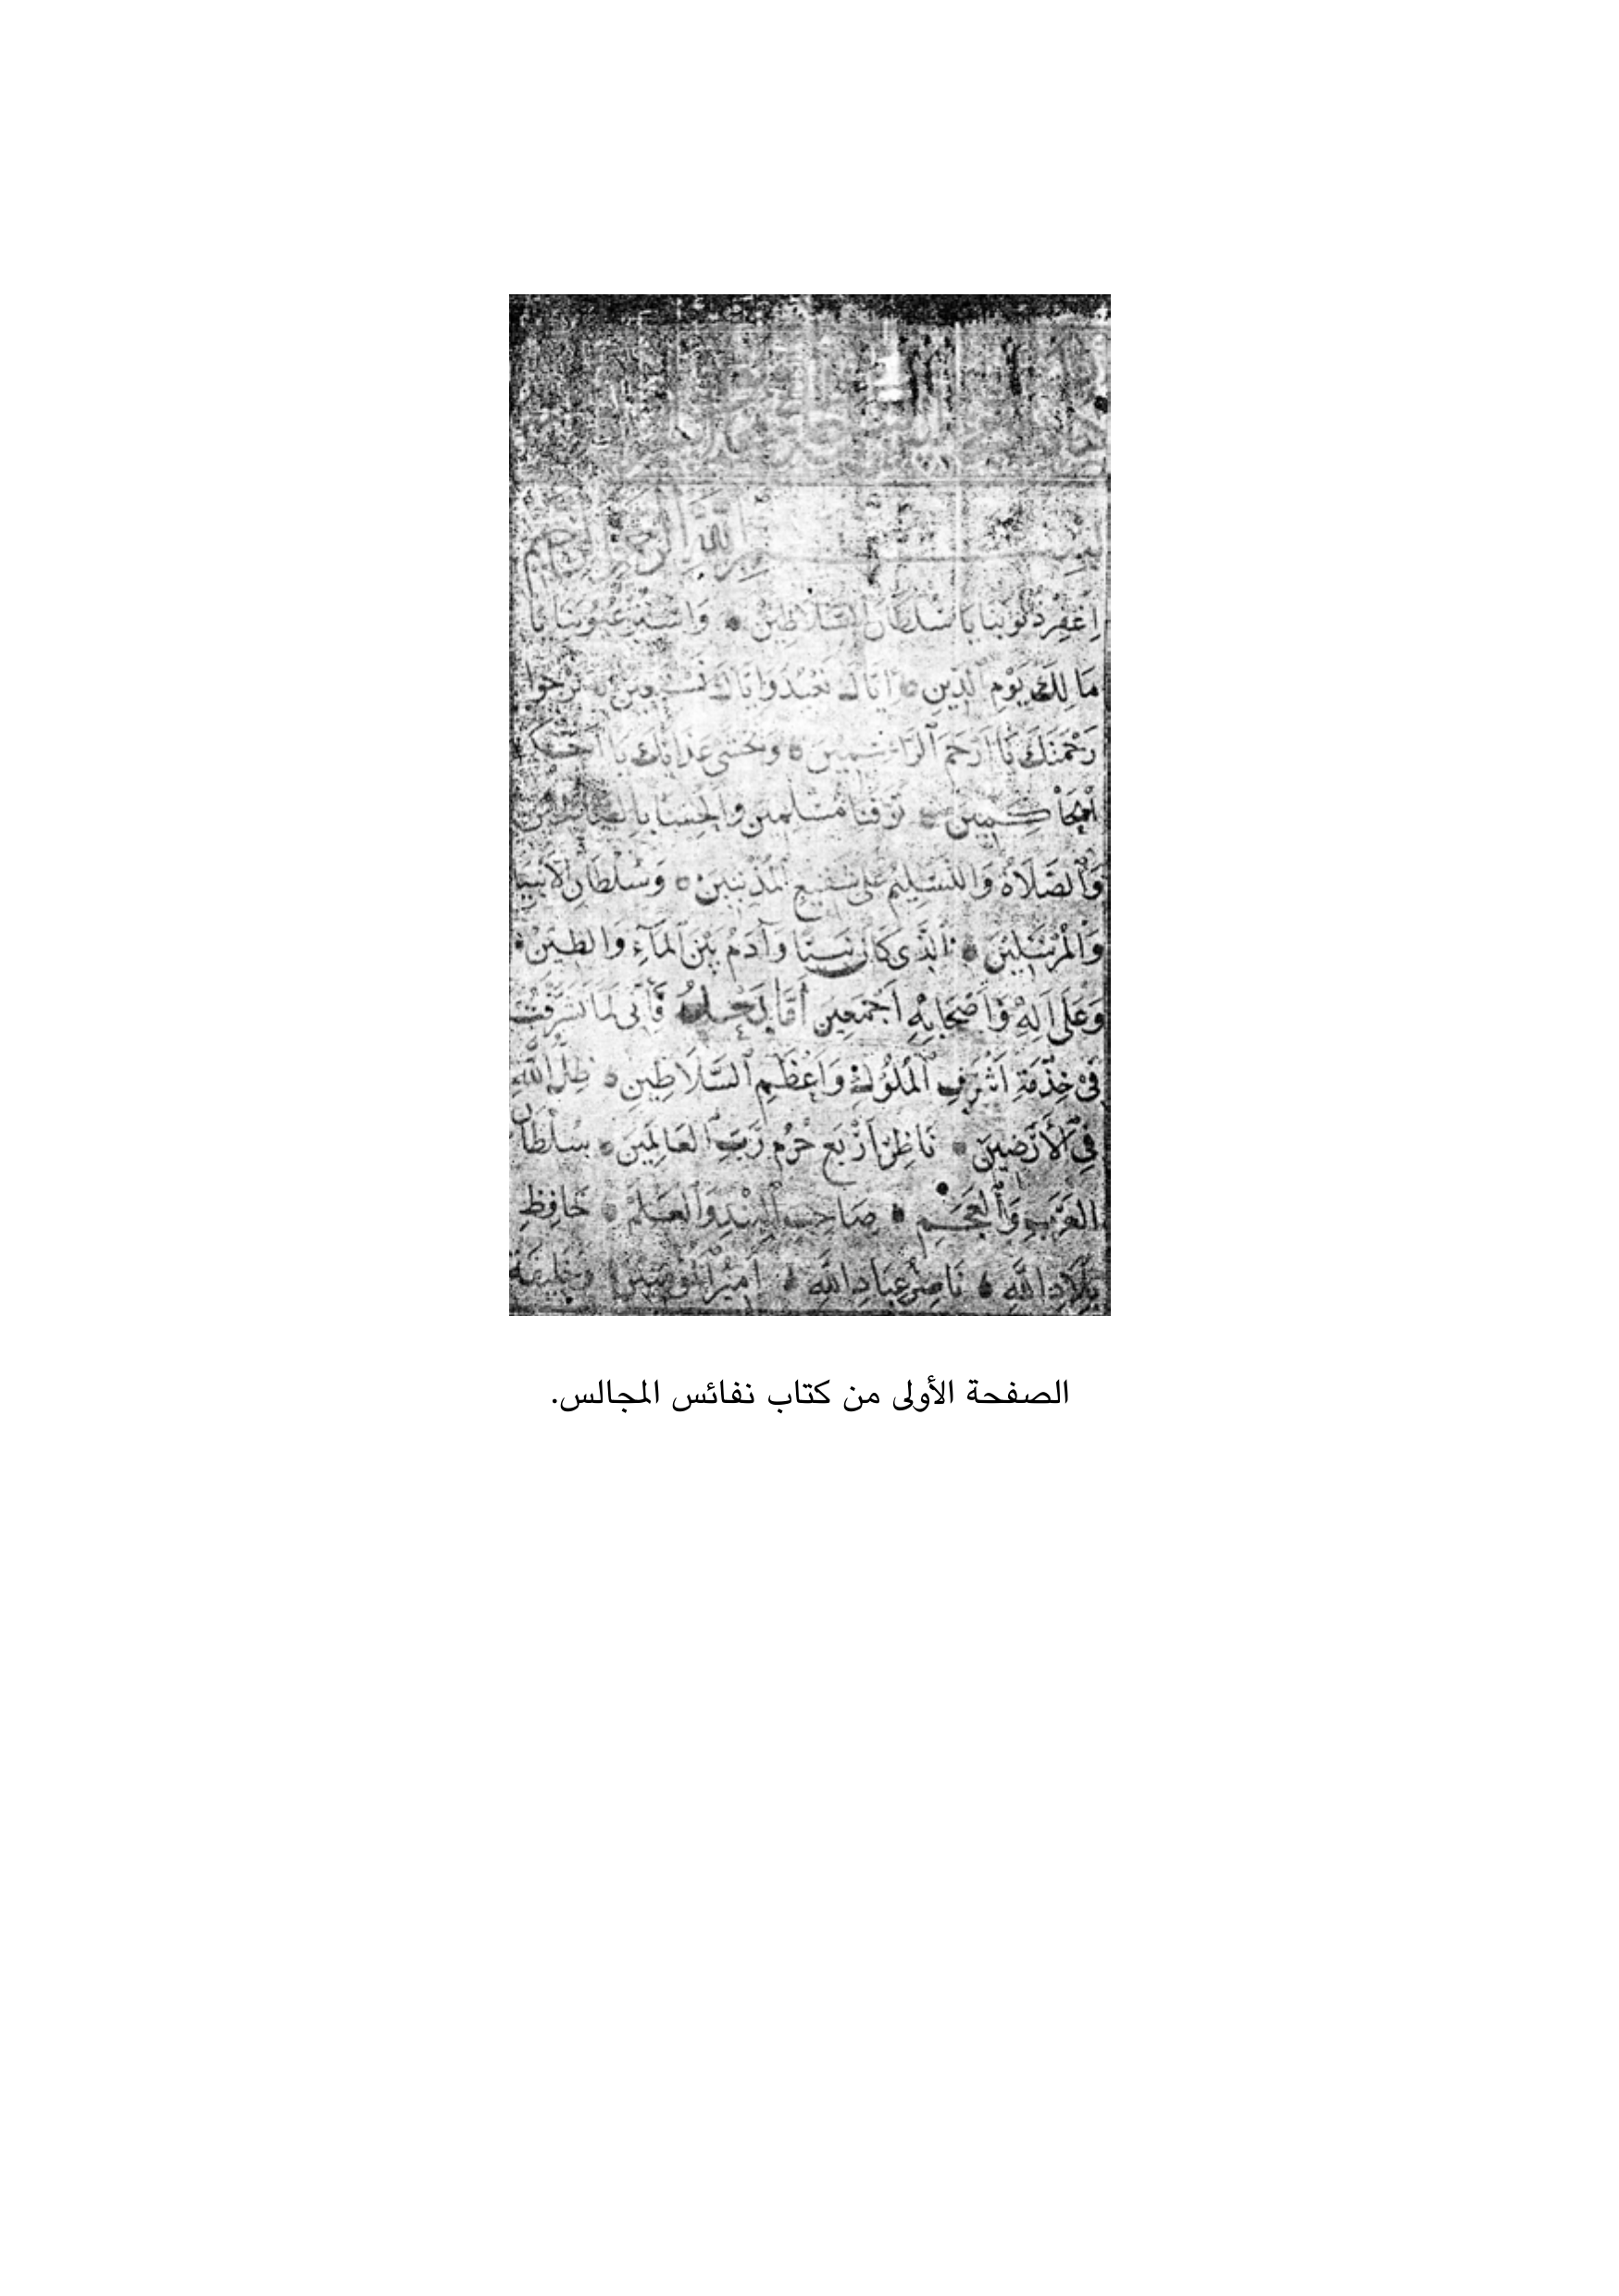 بسم الله الرحمن الرحيم
اِغْفِرْ ذُنُوبَنَا يَا سُلْطَانَ السَّلَاطِيْنَ وَاسْتُرْ عُيُوبَنَا يَا
مَالِكَ يَوْمِ الدِّينِ اِيَّاكَ نَعْبُدُ وَاِيَّاكَ نَسْتَعِينُ نَرْجُوا
رَحْمَتَكَ يَا اَرْحَمَ الرَّاحِمِينَ وَنَخْشَى عَذَابَكَ يَا اَحْكَمَ
الْحَاكِمِينَ تَوَفَّنَا مُسْلِمِينَ وَاَلْحِقْنَا بِالصَّالِحِينَ
وَالصَّلَاةُ وَالتَّسْلِيمُ عَلَى شَفِيعِ الْمُذْنِبِينَ وَسُلْطَانِ الْاَنْبِيَا
وَالْمُرْسَلِينَ الَّذِى كَانَ نَبِيًّا وَآدَمُ بَيْنَ الْمَآءِ وَالطِّيْنِ
وَعَلَى اٰلِهِ وَاَصْحَابِهِ اَجْمَعِينَ اَمَّا بَعْدُ فَاِنِّى لَمَّا تَشَرَّفْتُ
فِى خِدْمَةِ اَشْرَفِ الْمُلُوْكِ وَاَعْظَمِ السَّلَاطِينِ ظِلِّ اللهِ
فِى الْأَرَضِينَ نَاظِرِ اَرْبَعِ حَرَمِ رَبِّ الْعَالَمِينَ سُلْطَانِ
الْعَرَبِ وَالْعَجَمِ صَاحِبِ الْبَنْدِ وَالْعَلَمِ حَافِظِ
بِلَادِ اللهِ نَاصِرِ عِبَادِ اللهِ اَمِيرِ الْمُؤْمِنِينَ وَخَلِيفَةِ
الصفحة الأولى من كتاب نفائس المجالس.